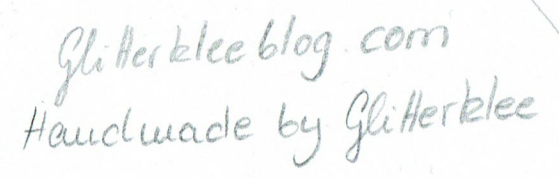 Glitterkleeblog.com
Handmade by Glitterklee